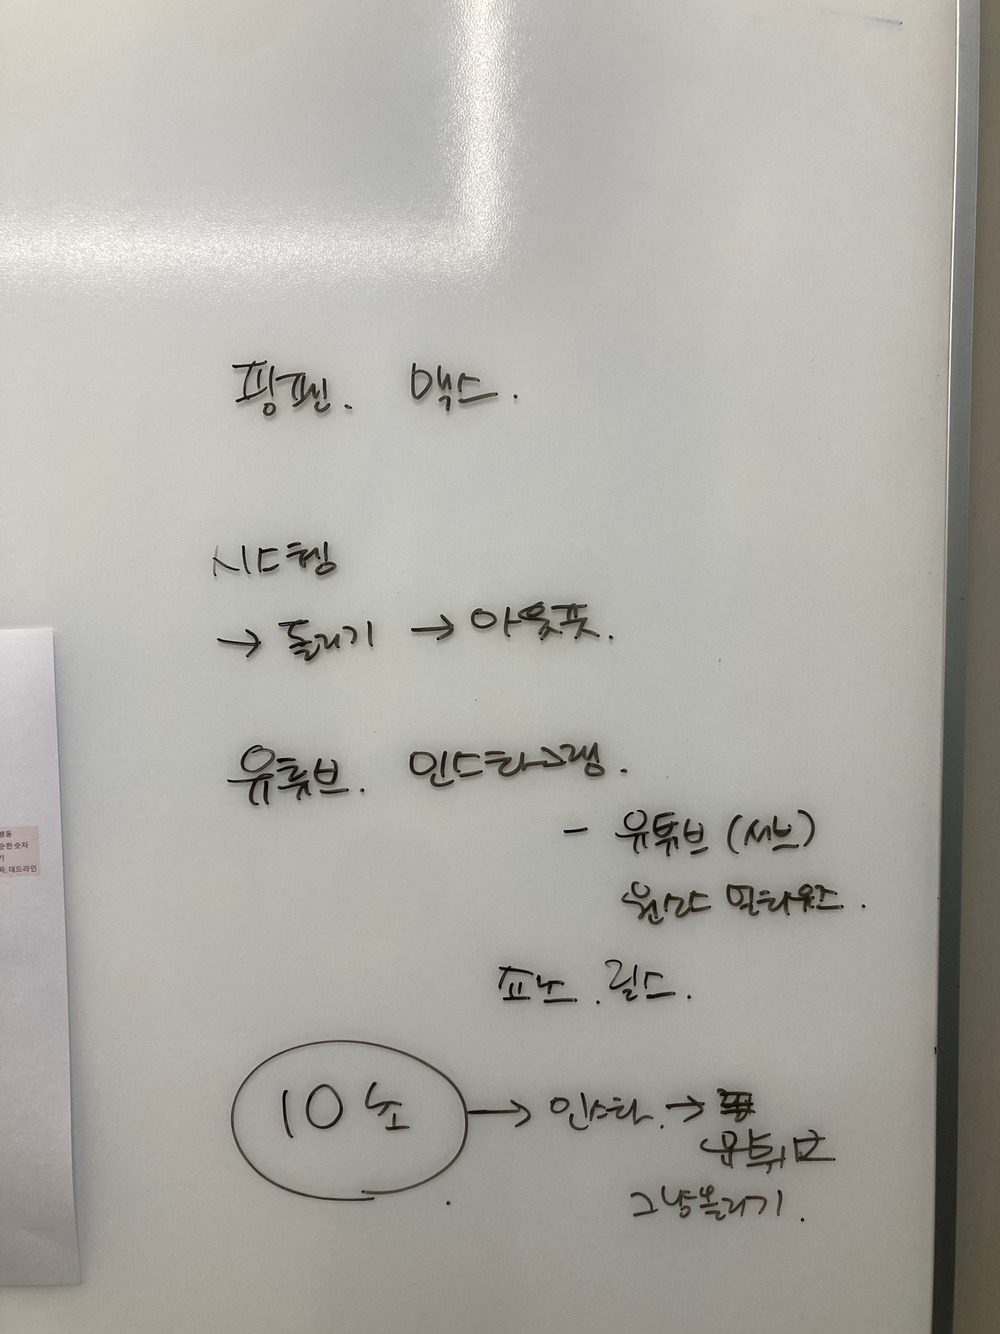 핑펜. 맥스.
시스템
→ 돌리기 → 아웃풋.
유튜브. 인스타그램.
- 유튜브 (서브)
릴스.
10초 → 인스타. →
유튜브
그냥올리기.
행동
순한 숫자
기
짜, 데드라인